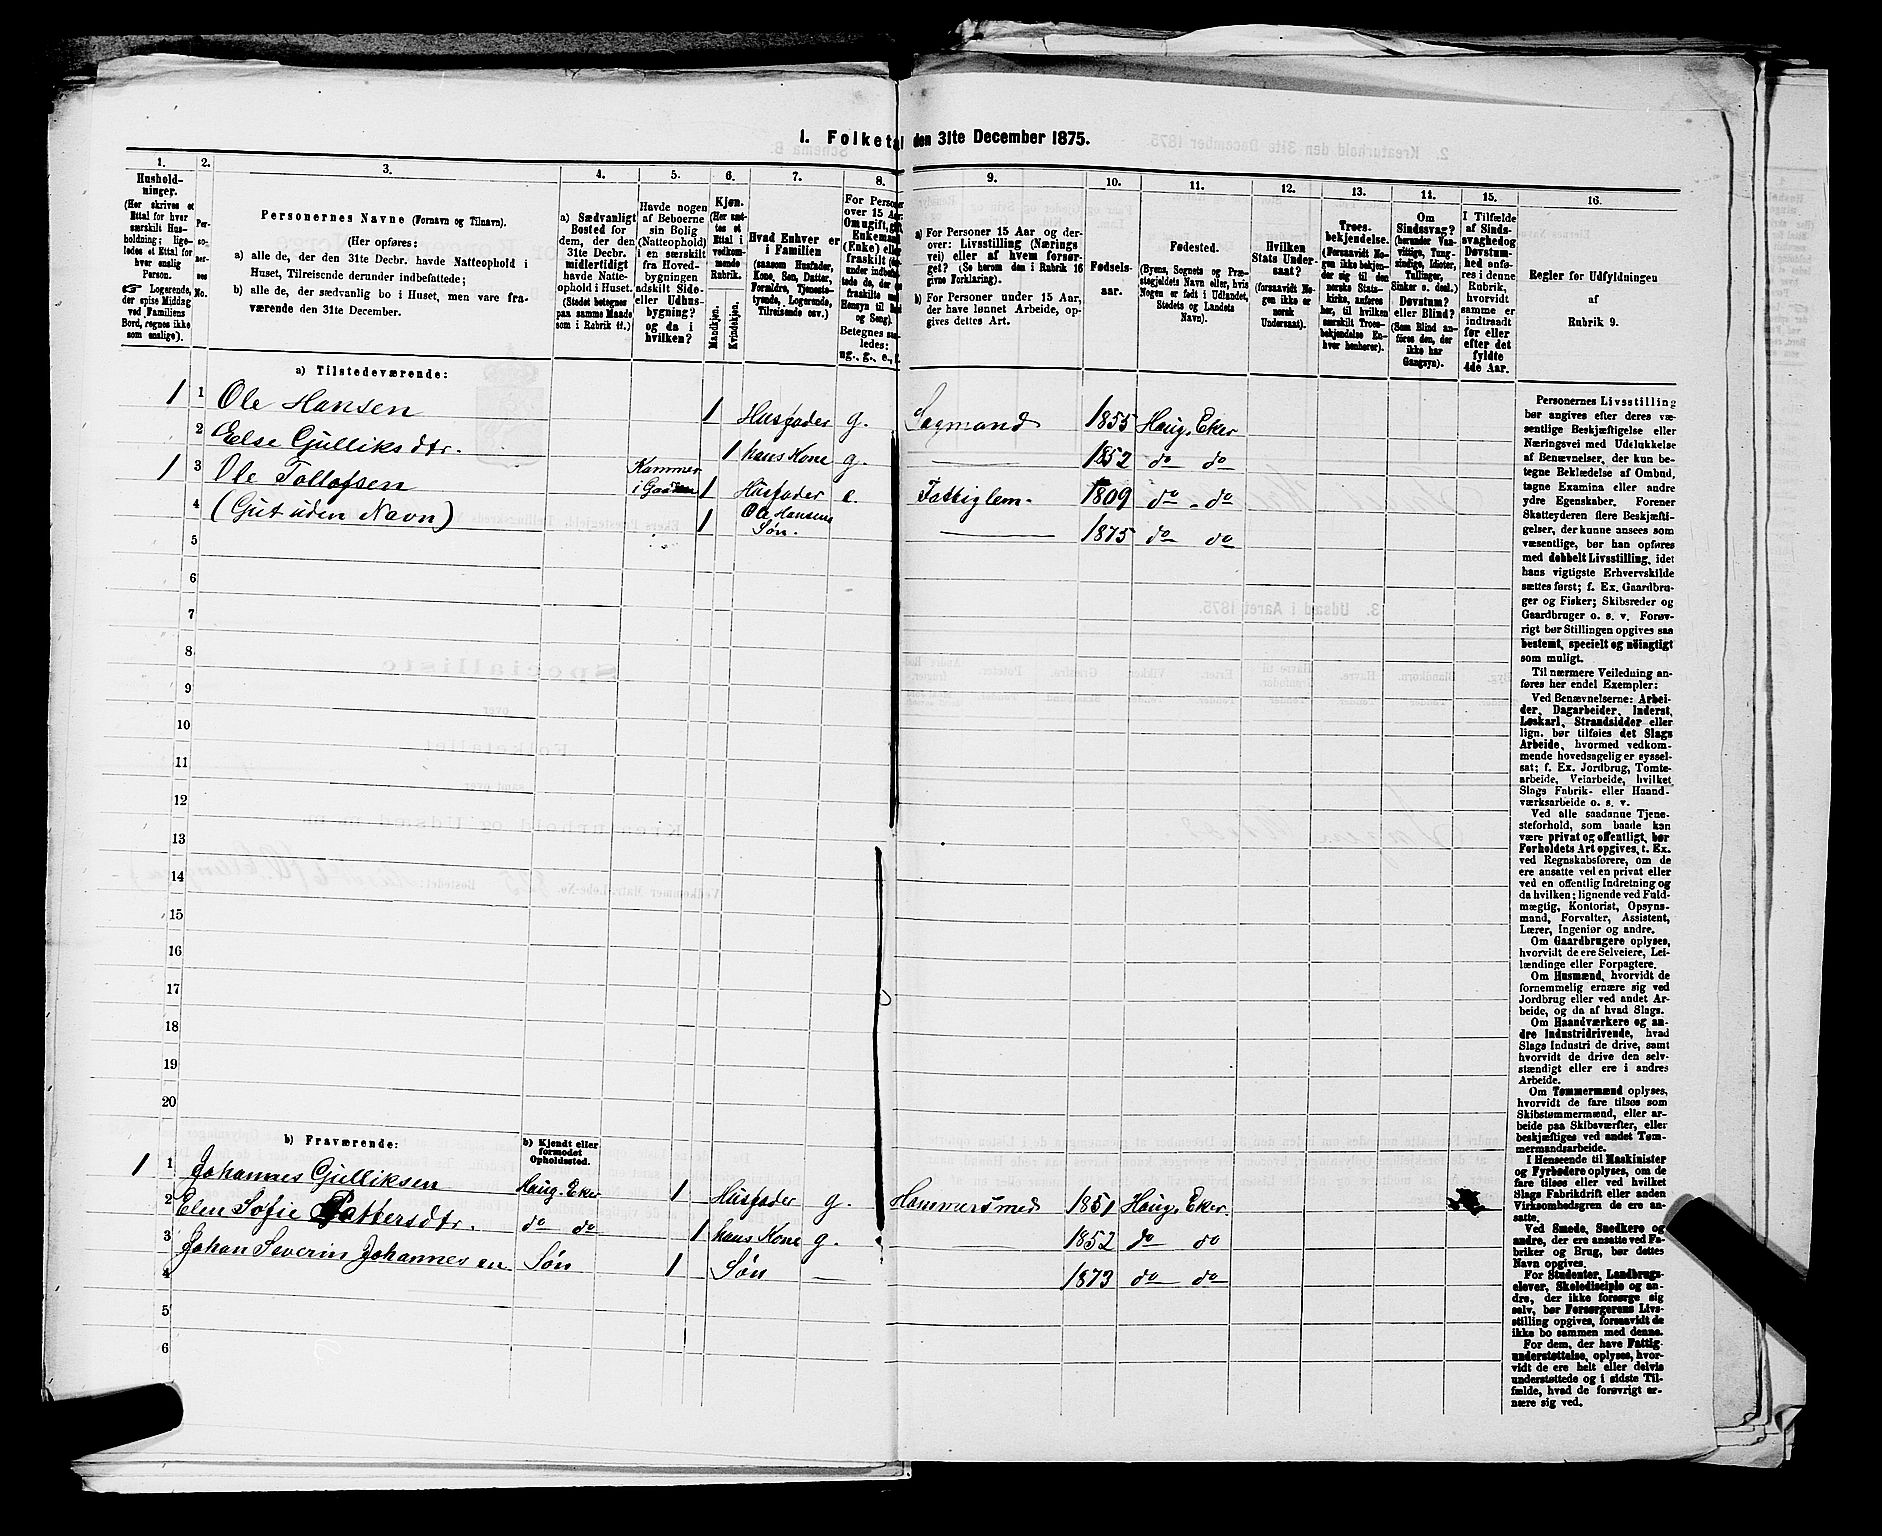 1. Folketal den 31te December 1875.
1. 2. 3. 4. 5. 6. 7. 8. 9. 10. 11. 12. 13. 14. 15. 16.
Hushold-
ninger.
(Her skrives et
Ettal for hver
særskilt Hus-
holdning; lige-
ledes et Ettal for
hver enslig
Person.
☞ Logerende,
der spise Middag
ved Familiens
Bord, regnes ikke
som enslige).
Per-
so-
ner-
nes
No.
Personernes Navne (Fornavn og Tilnavn).
(Her opføres:
a) alle de, der den 31te Decbr. havde Natteophold i
Huset, Tilreisende derunder indbefattede;
b) alle de, der sædvanlig bo i Huset, men vare fra-
værende den 31te December.
a) Sædvanligt
Bosted for
dem, der den
31te Decbr.
midlertidigt
havde Natte-
ophold i Huset.
(Stedet betegnes
paa samme Maade
som i Rubrik 11.)
Havde nogen
af Beboerne
sin Bolig
(Natteophold)
i en særskilt
fra Hoved-
bygningen
adskilt Side-
eller Udhus-
bygning?
og da i
hvilken?
Kjøn.
(Her sæt-
tes et
Ettal i
vedkom-
mende
Rubrik.
Mandkjøn.
Kvindekjøn.
Hvad Enhver er
i Familien
(saasom Husfader,
Kone, Søn, Datter,
Forældre, Tjeneste-
tyende, Logerende,
Tilreisende osv.)
For Personer
over 15 Aar:
Om ugift, gift,
Enkemand
(Enke) eller
fraskilt
Betegnes saa-
ledes:
ug., g., e., f.
a) For Personer 15 Aar og der-
over: Livsstilling (Nærings-
vei) eller af hvem forsør-
get? (Se herom den i Rubrik 16
givne Forklaring).
b) For Personer under 15 Aar,
der have lønnet Arbeide, op-
gives dettes Art.
Fødsels-
aar.
Fødested.
(Byens, Sognets og Præ-
stegjeldets Navn eller, hvis
Nogen er født i Udlandet,
Stedets og Landets
Navn).
Hvilken
Stats Under-
saat?
(forsaavidt No-
gen ikke er
norsk
Undersaat).
Troes-
bekjendelse.
(Forsaavidt No-
gen ikke bekjen-
der sig til den
norske Stats-
kirke, anføres
her, til hvilken
særskilt Troes-
bekjendelse En-
hver henhører).
Om
Sindssvag?
(herunder Van-
vittige, Tung-
sindige, Idioter,
Tullinger,
Sinker o. desl.)
Døvstum?
eller Blind?
(Som Blind an-
føres den, der
ikke har
Gangsyn).
I Tilfælde
af Sinds-
svaghed og
Døvstum-
hed anfø-
res i denne
Rubrik,
hvorvidt
samme er
indtraadt
før eller
efter det
fyldte
4de Aar.
Regler for Udfyldningen
af
Rubrik 9.
a) Tilstedeværende:
1 1 Ole Hansen 1 Husfader g. Sagmand 1855 Haug, Eker
2 Else Gulliksdtr. 1 hans Kone g. 1852 do do
1 3 Ole Tollofsen Kammer i Gaarden 1 Husfader e Fattiglem. 1809 do do
4 (Gut uden Navn) 1 Ole Hansens Søn. 1875 do do
5
6
7
8
9
10
11
12
13
14
15
16
17
18
19
20
b) Fraværende:
b) Kjendt eller
formodet
Opholdssted.
1 1 Johannes Gulliksen Haug. Eker 1 Husfader g. Hammersmed 1851 Haug, Eker.
2 Elen Sofie Pettersdtr. do do 1 hans Kone g. 1852 do do
3 Johan Severin Johannesen Søn 1 Søn 1873 do do
4
5
6
Personernes Livsstilling
bør angives efter deres væ-
sentlige Beskjæftigelse eller
Næringsvei med Udelukkelse
af Benævnelser, der kun be-
tegne Beklædelse af Ombud,
tagne Examina eller andre
ydre Egenskaber. Forener
Skatteyderen flere Beskjæfti-
gelser, der kunne ansees som
væsentlige, bør han opføres
med dobbelt Livsstilling, idet
hans vigtigste Erhvervskilde
sættes først; f. Ex. Gaardbru-
ger og Fisker; Skibsreder og
Gaardbruger o. s. v. Forøv-
rigt bør Stillingen opgives saa
bestemt, specielt og nöiagtigt
som muligt.
Til nærmere Veiledning an-
føres her endel Exempler:
Ved Benævnelserne: Arbei-
der, Dagarbeider, Inderst,
Løskarl, Strandsidder eller
lign. bør tilføies det Slags
Arbeide, hvormed vedkom-
mende hovedsagelig er syssel-
sat; f. Ex. Jordbrug, Tomte-
arbeide, Veiarbeide, hvilket
Slags Fabrik- eller Haand-
værksarbeide o. s. v.
Ved alle saadanne Tjene-
steforhold, som baade kan
være privat og offentligt, bør
Forholdets Art opgives, t. Ex.
ved Regnskabsførere, om de
ere ansatte ved en privat eller
ved en offentlig Indretning og
da hvilken; lignende ved Fuld-
mægtig, Kontorist, Opsyns-
mand, Forvalter, Assistent,
Lærer, Ingeniør og andre.
Om Gaardbrugere oplyses,
hvorvidt de ere Selveiere, Lei-
lændinge eller Forpagtere.
Om Husmænd, hvorvidt de
fornemmelig ernære sig ved
Jordbrug eller ved andet Ar-
beide, og da af hvad Slags.
Om Haandværkere og an-
dre Industridrivende, hvad
Slags Industri de drive, samt
hvorvidt de drive den selv-
stændigt eller ere i andres
Arbeide.
Om Tømmermænd oplyses,
hvorvidt de fare tilsøs som
Skibstømmermænd, eller ar-
beide paa Skibsværfter, eller
beskjæftiges ved andet Tøm-
mermandsarbeide.
I Henseende til Maskinister
og Fyrbødere oplyses, om de
fare tilsøs eller ved hvilket
Slags Fabrikdrift eller anden
Virksomhedsgren de ere an-
satte.
Ved Smede, Snedkere og
andre, der ere ansatte ved Fa-
briker og Brug, bør dettes
Navn opgives.
For Studenter, Landbrugs-
elever, Skoledisciple og an-
dre, der ikke forsørge sig
selv, bør Forsørgerens Livs-
stilling opgives, forsaavidt de
ikke bo sammen med denne.
For dem, der have Fattig-
understøttelse, oplyses, hvor-
vidt de ere helt eller delvis
understøttede og i sidste Til-
fælde, hvad de forøvrigt er-
nære sig ved.